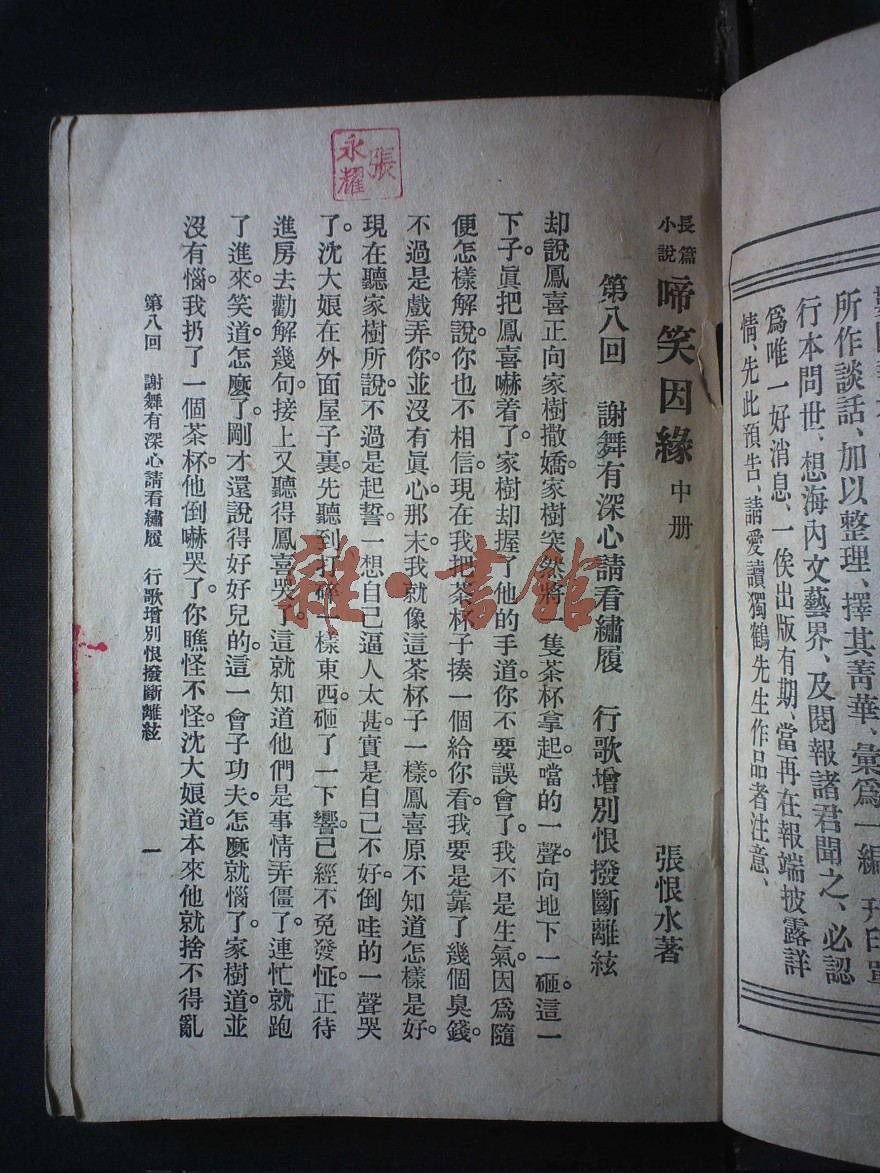 所作談話、加以整理、擇其菁華、彙爲一編、刋印單
行本問世、想海內文藝界、及閱報諸君聞之、必認
爲唯一好消息、一俟出版有期、當再在報端披露詳
情、先此預告、請愛讀獨鶴先生作品者注意、
長篇小說 啼笑因緣 中册
張恨水著
第八回 謝舞有深心請看繡履 行歌增別恨撥斷離絃
却說鳳喜正向家樹撒嬌。家樹突然將一隻茶杯拿起。噹的一聲。向地下一砸。這一
下子。眞把鳳喜嚇着了。家樹却握了他的手道。你不要誤會了。我不是生氣。因爲隨
便怎樣解說。你也不相信。現在我把茶杯子揍一個給你看。我要是靠了幾個臭錢。
不過是戲弄你。並沒有眞心。那末。我就像這茶杯子一樣。鳳喜原不知道怎樣是好。
現在聽家樹所說。不過是起誓。一想自己逼人太甚。實是自己不好。倒哇的一聲哭
了。沈大娘在外面屋子裏。先聽到打碎一樣東西。砸了一下響。已經不免發怔。正待
進房去勸解幾句。接上又聽得鳳喜哭了。這就知道他們是事情弄僵了。連忙就跑
了進來。笑道。怎麼了。剛才還說得好好兒的。這一會子功夫。怎麼就惱了。家樹道。並
沒有惱。我扔了一個茶杯。他倒嚇哭了。你瞧怪不怪。沈大娘道。本來他就捨不得亂
第八回 謝舞有深心請看繡履 行歌增別恨撥斷離絃
一
張永耀
雜·書館